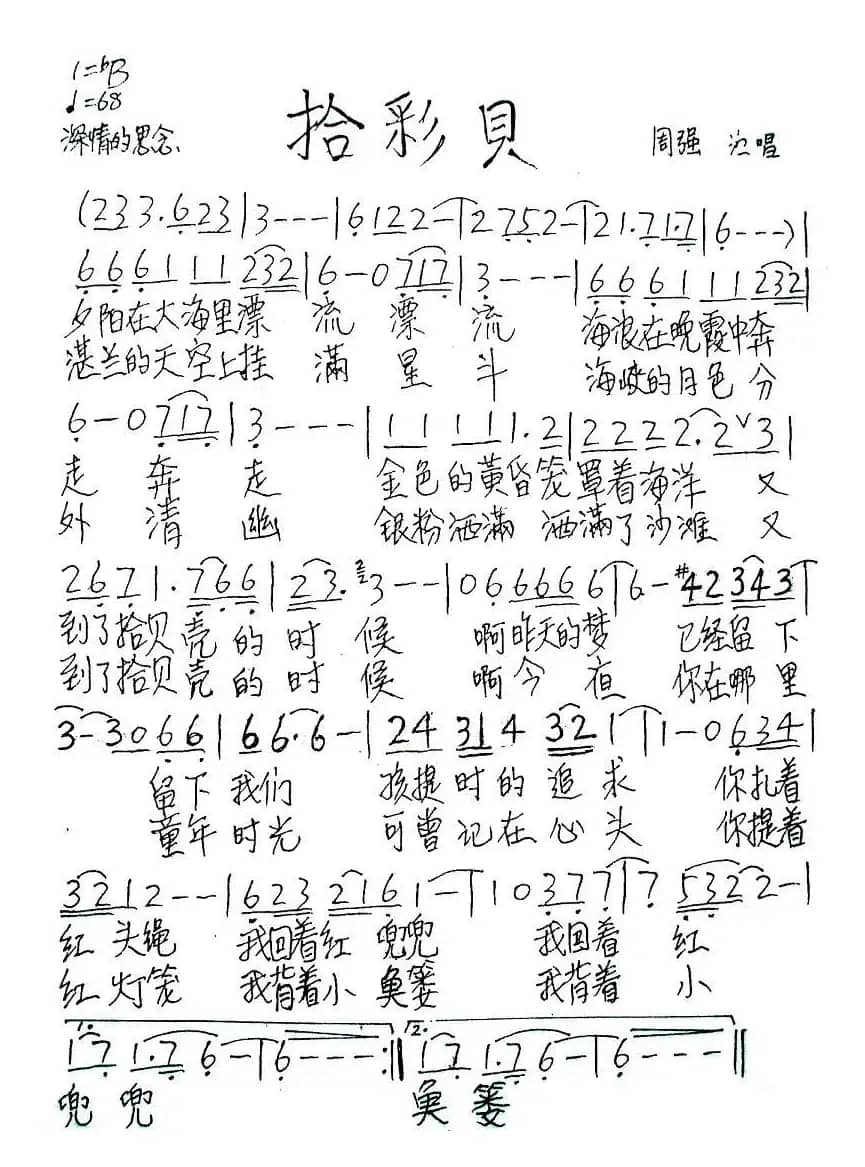 1=♭B
♩=68
深情的思念、
拾彩貝
周强 演唱
(233.623|3---|6122-|2752-|21.71.7|6---)|
666111232|6-0717|3---|666111232|
夕阳在大海里漂 流 漂 流 海浪在晚霞中奔
湛兰的天空上挂 满 星 斗 海峡的月色分
6-0717|3---|11111.2|22222.2∨3|
走 奔 走 金色的黄昏笼罩着海洋 又
外 清 幽 银粉洒满 洒满了沙滩 又
2671.766|23.3--|0666666|6-#42343|
到了拾贝壳的时候 啊昨天的梦 已经留下
到了拾贝壳的时候 啊今夜 你在哪里
3-3066|66.6-|24314321|1-0634|
留下我们 孩提时的追求 你扎着
童年时光 可曾记在心头 你提着
3212--|6232161-|10377|75322-|
红头绳 我回着红兜兜 我回着 红
红灯笼 我背着小鱼篓 我背着 小
1. 171.76-|6---:‖2. 171.76-|6---‖
兜兜 鱼篓